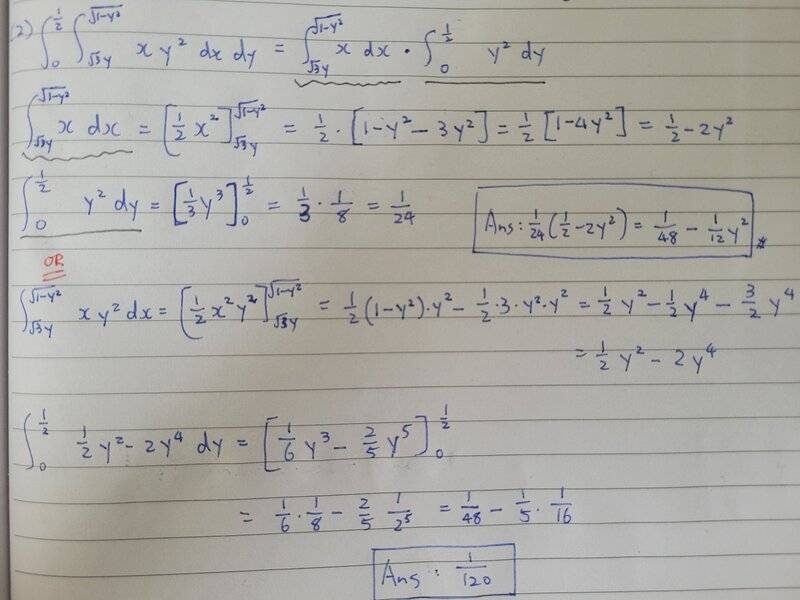 2) ∫₀^{1/2} ∫_{√3y}^{√1-y²} x y² dx dy = ∫_{√3y}^{√1-y²} x dx · ∫₀^{1/2} y² dy
∫_{√3y}^{√1-y²} x dx = [1/2 x²]_{√3y}^{√1-y²} = 1/2 · [1-y² - 3y²] = 1/2 [1-4y²] = 1/2 - 2y²
∫₀^{1/2} y² dy = [1/3 y³]₀^{1/2} = 1/3 · 1/8 = 1/24
Ans: 1/24 (1/2 - 2y²) = 1/48 - 1/12 y²
OR
∫_{√3y}^{√1-y²} x y² dx = [1/2 x² y²]_{√3y}^{√1-y²} = 1/2 (1-y²)·y² - 1/2·3·y²·y² = 1/2 y² - 1/2 y⁴ - 3/2 y⁴
= 1/2 y² - 2y⁴
∫₀^{1/2} 1/2 y² - 2y⁴ dy = [1/6 y³ - 2/5 y⁵]₀^{1/2}
= 1/6 · 1/8 - 2/5 1/2⁵ = 1/48 - 1/5 · 1/16
Ans : 1/120